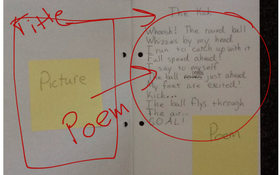 Title
The Kick
Whoosh! The round ball
Whizzes by my head.
I run to catch up with it
Full speed ahead!
I say to myself.
The ball just ahead
My feet are excited!
Kick...
The ball flys through
The air...
GOAL!
Picture
Poem
Poem